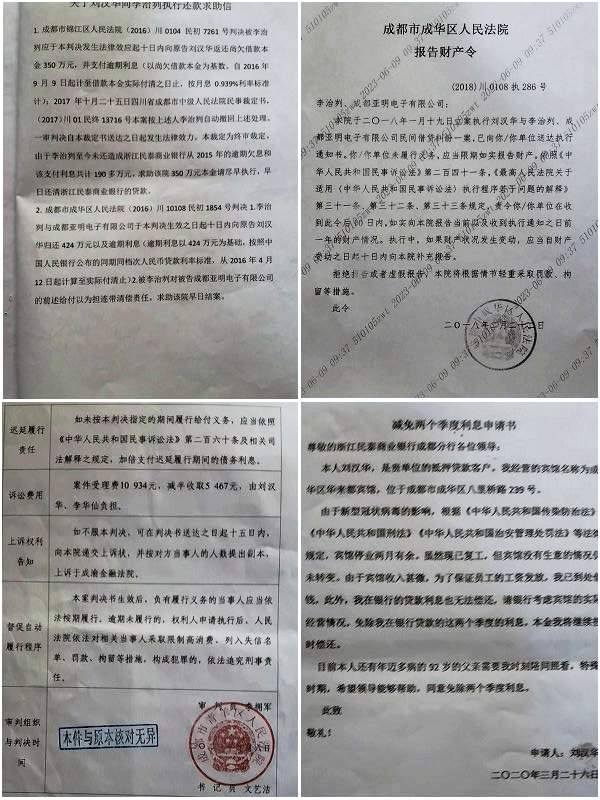 关于刘汉华同李治列执行还款求助信
1. 成都市锦江区人民法院（2016）川 0104 民初 7261 号判决被李治
列应于本判决发生法律效应起十日内向原告刘汉华返还尚欠借款本
金 350 万元，并支付逾期利息（以尚欠借款本金为基数，自 2016 年
9 月 9 日起计至借款本金实际付清之日止，按月息 0.939%利率标准
计）；2017 年十月二十五日四川省成都市中级人民法院民事裁定书，
（2017）川 01 民终 13716 号本案按上述人李治列自动撤回上述处理。
一审判决自本裁定书送达之日起发生法律效力。本裁定为终审裁定，
由于李治列至今未还造成浙江民泰商业银行从 2015 年的逾期欠息和
该支付利息共计 190 多万元，求助该院 350 万元本金请尽早执行，早
日还清浙江民泰商业银行的贷款。
2. 成都市成华区人民法院（2016）川 10108 民初 1854 号判决 1.李治
列与成都亚明电子有限公司于本决生效之日起十日内向原告刘汉华
归还 424 万元以及逾期利息（逾期利息以 424 万元为基础，按照中
国人民银行公布的同期同档次人民币贷款利率标准，从 2016 年 4 月
12 日起计算至实际付清止）2.被李治列对被告成都亚明电子有限公司
的前述给付以为担连带清偿责任，求助该院早日结案。
成都市成华区人民法院
报告财产令
（2018）川 0108 执 286 号
李治列、成都亚明电子有限公司：
本院于二〇一八年一月十九日立案执行刘汉华与李治列、成
都亚明电子有限公司民间借贷纠纷一案，已向你/你单位送达执行
通知书。你/你单位未履行义务，应当限期如实报告财产。依照《中
华人民共和国民事诉讼法》第二百四十一条、《最高人民法院关于
适用〈中华人民共和国民事诉讼法〉执行程序若干问题的解释》
第三十一条、第三十二条、第三十三条规定，责令你/你单位在收
到此令后 日内，如实向本院报告当前以及收到执行通知之日前
一年的财产情况。执行中，如果财产状况发生变动，应当自财产
变动之日起十日内向本院补充报告。
拒绝报告或者虚假报告，本院将根据情节轻重采取罚款、拘
留等措施。
此令
二〇一八年二月二十 日
成都市成华区人民法院
510105zwt 2023-06-09 09:37
迟延履行
责任
如未按本判决指定的期间履行给付义务，应当依照
《中华人民共和国民事诉讼法》第二百六十条及相关司
法解释之规定，加倍支付迟延履行期间的债务利息。
诉讼费用
案件受理费10 934元，减半收取5 467元，由刘汉
华、李华仙负担。
上诉权利
告知
如不服本判决，可在判决书送达之日起十五日内，
向本院递交上诉状，并按对方当事人的人数提出副本，
上诉于成渝金融法院。
督促自动
履行程序
本案判决书生效后，负有履行义务的当事人应当依
法按期履行。逾期未履行的，权利人申请执行后，人民
法院依法对相关当事人采取限制高消费、列入失信名
单、罚款、拘留等措施，构成犯罪的，依法追究刑事责
任。
审判组织
与判决时
间
审 判 员 李拥军
本件与原本核对无异
书 记 员 文艺洁
减免两个季度利息申请书
尊敬的浙江民泰商业银行成都分行各位领导：
本人刘汉华，是贵单位的抵押贷款客户。我经营的宾馆名称为成
华区华来都宾馆，位于成都市成华区八里桥路 239 号。
由于新型冠状病毒的影响，根据《中华人民共和国传染防治法》
《中华人民共和国刑法》《中华人民共和国治安管理处罚法》等法律
规定，宾馆停业两月有余。虽然现已复工，但宾馆没有生意的情况仍
未转变。由于宾馆收入甚微，为了保证员工的工资发放，我已到处借
钱，此外，我在银行的贷款利息也无法偿还。请银行考虑宾馆的实际
经营情况，免除我在银行贷款的这两个季度的利息。本金我将继续按
时偿还。
目前本人还有年迈多病的 92 岁的父亲需要我时刻陪同照看。特殊
时期，希望领导能够帮助，同意免除两个季度利息。
此致
敬礼！
申请人：刘汉华
二〇二〇年三月二十六日